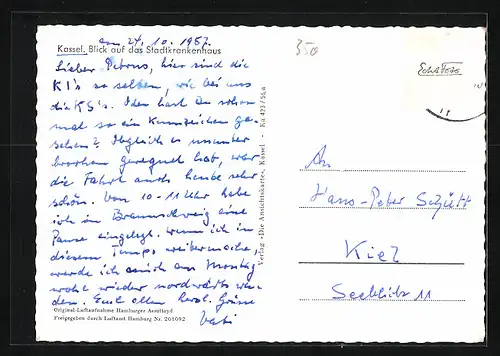 Kassel, Blick auf das Stadtkrankenhaus
am 24.10.1957.
350
Echt Foto
Lieber Petrus, hier sind die
K1's so selten, wie bei uns
die KS's. Hast Du schon
mal so ein Kennzeichen ge-
sehen? Obgleich es ununter
brochen geregnet hat, war
die Fahrt auch heute sehr
schön. Von 10-11 Uhr habe
ich in Braunschweig eine
Pause eingelegt. wenn ich in
diesem Tempo weitermache,
werde ich mich am Montag
wohl wieder nordwärts wen
den. Euch allen herzl. Grüße
Vati
Original-Luftaufnahme Hamburger Aerolloyd
Freigegeben durch Luftamt Hamburg Nr. 204092
Verlag »Die Ansichtskarte«, Kassel · Ka 423/56a
An
Hans-Peter Schütt
Kiel
Seeblick 11